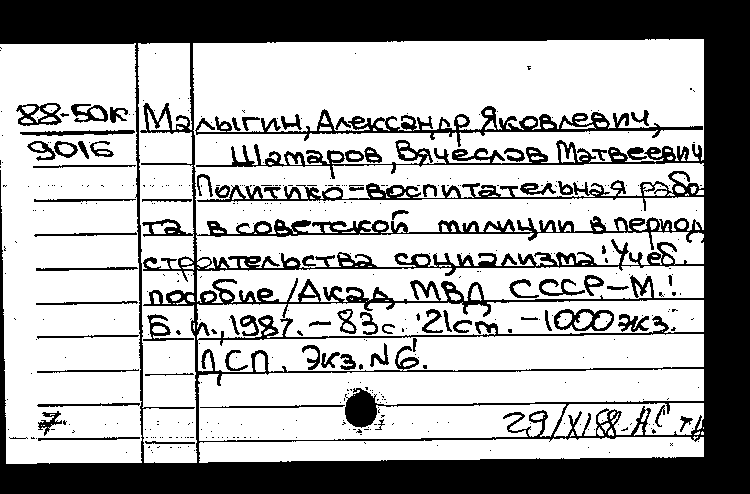 88-50к Малыгин, Александр Яковлевич,
9016 Шамаров, Вячеслав Матвеевич
Политико-воспитательная рабо-
та в советской милиции в период
строительства социализма: Учеб.
пособие /Акад. МВД СССР.-М.:
Б. и., 1987. - 83с. 21см. - 1000 экз.
ДСП. Экз. N6.
7 29/XI 88 - А.С.